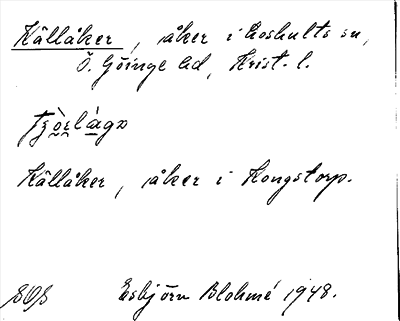 Källåker, åker i Loshults sn,
Ö. Göinge hd, Krist. l.
Källåker, åker i Kongstorp.
Esbjörn Blohmé 1948.